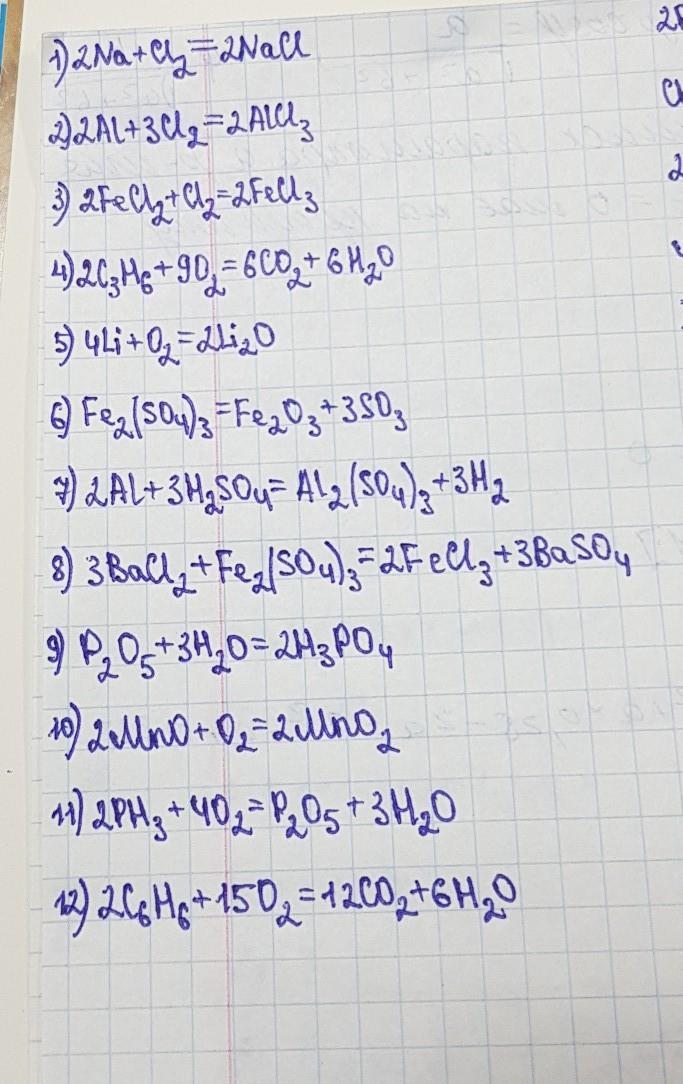 1) 2Na + Cl₂ = 2NaCl
2) 2Al + 3Cl₂ = 2AlCl₃
3) 2FeCl₂ + Cl₂ = 2FeCl₃
4) 2C₃H₆ + 9O₂ = 6CO₂ + 6H₂O
5) 4Li + O₂ = 2Li₂O
6) Fe₂(SO₄)₃ = Fe₂O₃ + 3SO₃
7) 2Al + 3H₂SO₄ = Al₂(SO₄)₃ + 3H₂
8) 3BaCl₂ + Fe₂(SO₄)₃ = 2FeCl₃ + 3BaSO₄
9) P₂O₅ + 3H₂O = 2H₃PO₄
10) 2MnO + O₂ = 2MnO₂
11) 2PH₃ + 4O₂ = P₂O₅ + 3H₂O
12) 2C₆H₆ + 15O₂ = 12CO₂ + 6H₂O